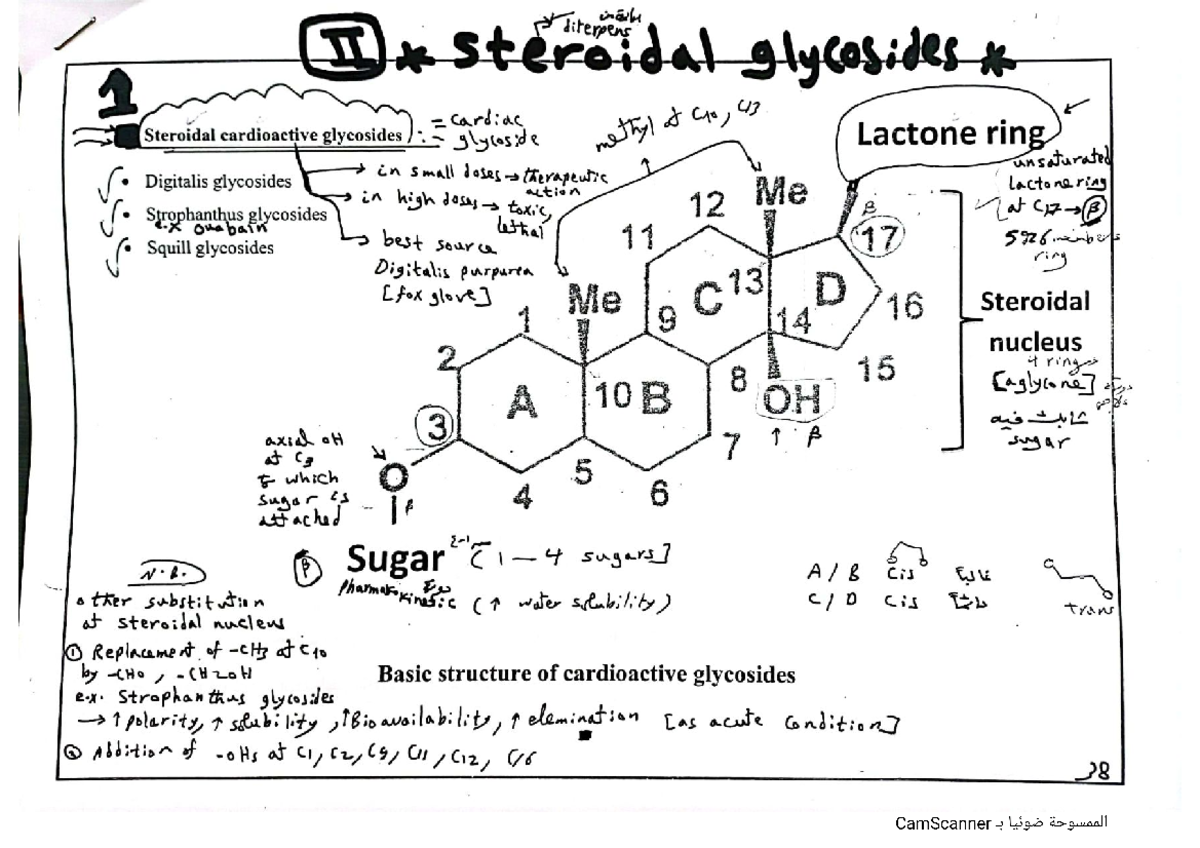 II * Steroidal glycosides *
diterpens
1
Steroidal cardioactive glycosides
= cardiac
glycoside
• Digitalis glycosides
• Strophanthus glycosides
e.x ouabain
• Squill glycosides
→ in small doses → therapeutic
action
→ in high doses → toxic,
lethal
→ best source
Digitalis purpurea
[fox glove]
methyl at C10, C13
Lactone ring
unsaturated
lactone ring
at C17 → β
ring
Me
Me
β
1
2
3
4
5
6
7
8
9
10
11
12
13
14
15
16
17
A
B
C
D
OH
↑ β
Steroidal
nucleus
4 rings
[aglycone]
sugar
axial OH
at C3
to which
sugar is
attached
O
β
β
Sugar
(1 – 4 sugars]
(↑ water solubility)
A / B Cis
C / D Cis
trans
N.B.
other substitution
at steroidal nucleus
① Replacement of -CH3 at C10
by -CHO, -CH2OH
e.x. Strophanthus glycosides
→ ↑ polarity, ↑ solubility, ↑ Bioavailability, ↑ elemination [as acute condition]
② Addition of -OHs at C1, C2, C9, C11, C12, C16
Basic structure of cardioactive glycosides
38
الممسوحة ضوئيا بـ CamScanner